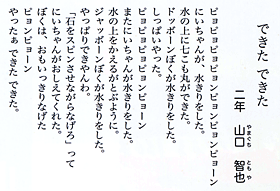 できた できた
二年 山口 智也
やまぐち ともや
ピョピョピョピョンピョンピョーン
にいちゃんが、水きりをした。
水の上に七こも丸ができた。
ドッボーンぼくが水きりをした。
しっぱいやった。
ピョピョピョンピョンピョーン
またにいちゃんが水きりをした。
水の上をかえるがとぶように。
ジャッボーンぼくが水きりをした。
やっぱりできやんわ。
「石をスピンさせながらなげろ」って
にいちゃんがおしえてくれた。
ぼくは、おもいっきりなげた
ピョンピョーン
やったぁ できた できた。